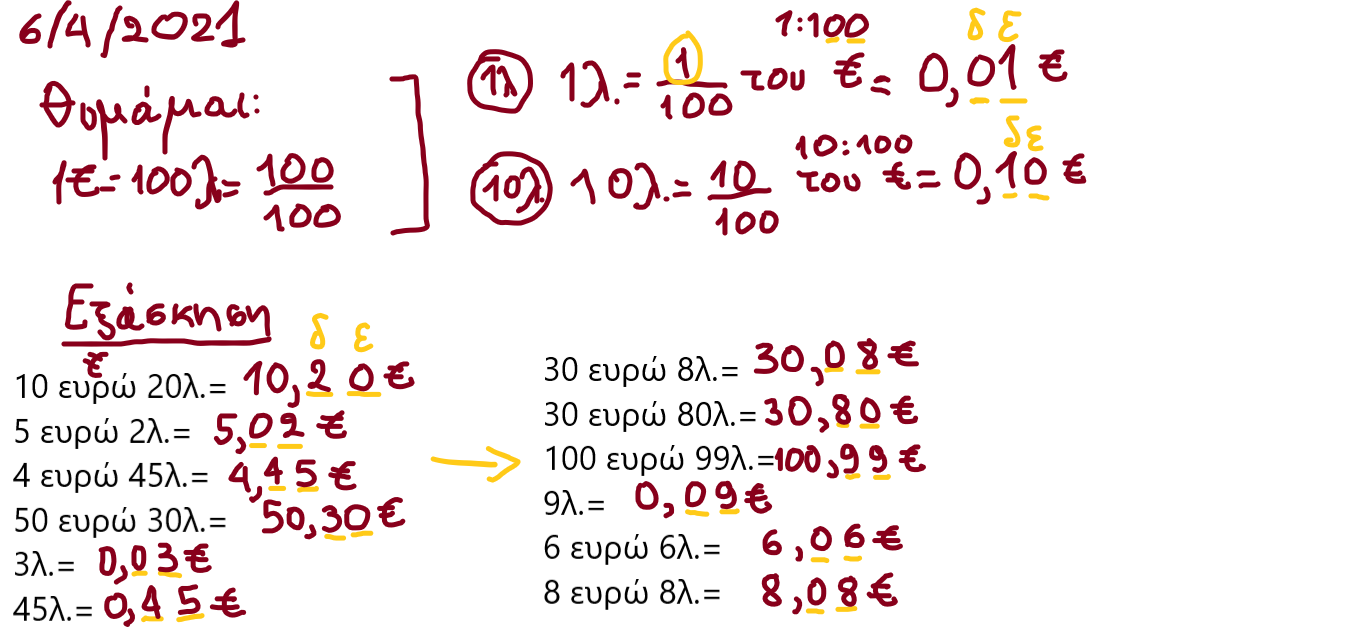 6/4/2021
Θυμάμαι:
1€=100λ=100/100
1λ 1λ.=1/100 του €=0,01 €
1:100
δ ε
10λ. 10λ.=10/100 του €=0,10 €
10:100
δ ε
Εξάσκηση
δ ε
€
10 ευρώ 20λ.= 10,20€
5 ευρώ 2λ.= 5,02 €
4 ευρώ 45λ.= 4,45 €
50 ευρώ 30λ.= 50,30€
3λ.= 0,03€
45λ.= 0,45€
→
30 ευρώ 8λ.= 30,08€
30 ευρώ 80λ.= 30,80 €
100 ευρώ 99λ.=100,99 €
9λ.= 0,09€
6 ευρώ 6λ.= 6,06€
8 ευρώ 8λ.= 8,08€